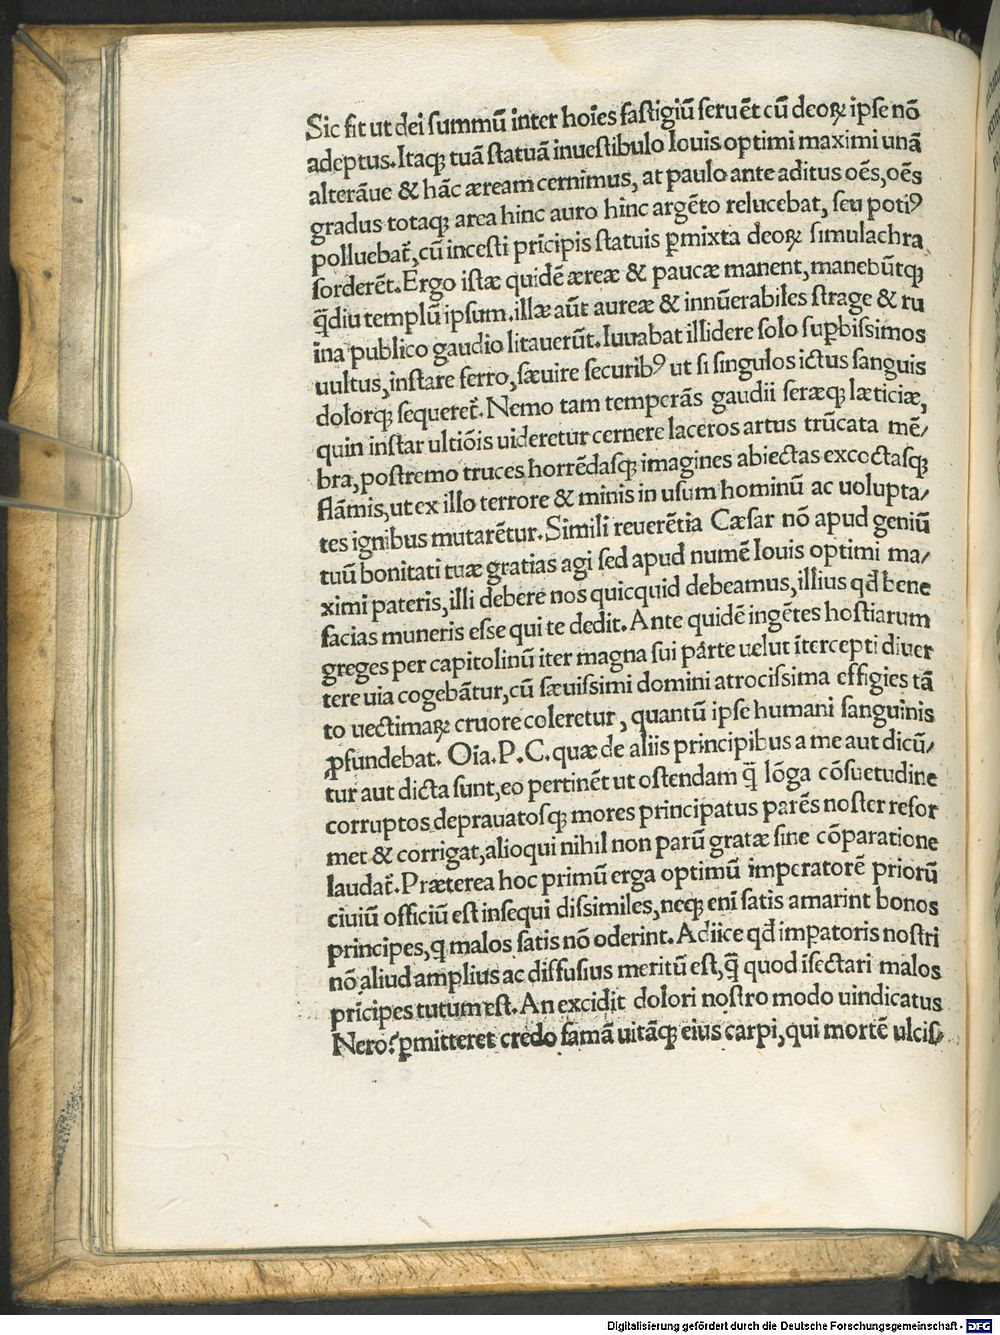 Sic fit ut dei summū inter hoīes fastigiū seruēt cū deoꝝ ipse nō
adeptus. Itaqꝫ tuā statuā inuestibulo Iouis optimi maximi unā
alterāue & hāc æream cernimus, at paulo ante aditus oēs, oēs
gradus totaqꝫ area hinc auro hinc argēto relucebat, seu potiꝰ
polluebat᷑, cū incesti prīcipis statuis ꝑmixta deoꝝ simulachra
sorderēt. Ergo istæ quidē æreæ & paucæ manent, manebūtqꝫ
q̄diu templū ipsum. illæ aūt aureæ & innūerabiles strage & ru
ina publico gaudio litauerūt. Iuuabat illidere solo suꝑbissimos
uultus, instare ferro, sæuire securibꝰ ut si singulos ictus sanguis
dolorqꝫ sequeret᷑. Nemo tam temperās gaudii seræqꝫ læticiæ,
quin instar ultiōis uideretur cernere laceros artus trūcata mē/
bra, postremo truces horrēdasqꝫ imagines abiectas excoctasqꝫ
flāmis, ut ex illo terrore & minis in usum hominū ac uolupta/
tes ignibus mutarētur. Simili reuerētia Cæsar nō apud geniū
tuū bonitati tuæ gratias agi sed apud numē Iouis optimi ma/
ximi pateris, illi debere nos quicquid debeamus, illius qđ bene
facias muneris esse qui te dedit. Ante quidē ingētes hostiarum
greges per capitolinū iter magna sui parte uelut ītercepti diuer
tere uia cogebātur, cū sæuissimi domini atrocissima effigies tā
to uectimaꝝ cruore coleretur, quantū ipse humani sanguinis
ꝓfundebat. Oīa. P. C. quæ de aliis principibus a me aut dicū/
tur aut dicta sunt, eo pertinēt ut ostendam q̄ lōga cōsuetudine
corruptos deprauatosqꝫ mores principatus parēs noster refor
met & corrigat, alioqui nihil non parū gratæ sine cōparatione
laudat᷑. Præterea hoc primū erga optimū imperatorē priorū
ciuiū officiū est insequi dissimiles, neqꝫ enī satis amarint bonos
principes, q malos satis nō oderint. Adiice qđ impatoris nostri
nō aliud amplius ac diffusius meritū est, q̄ quod īsectari malos
prīcipes tutum est. An excidit dolori nostro modo uindicatus
Nero? ꝑmitteret credo famā uitāqꝫ eius carpi, qui mortē ulcis/
Digitalisierung gefördert durch die Deutsche Forschungsgemeinschaft - DFG